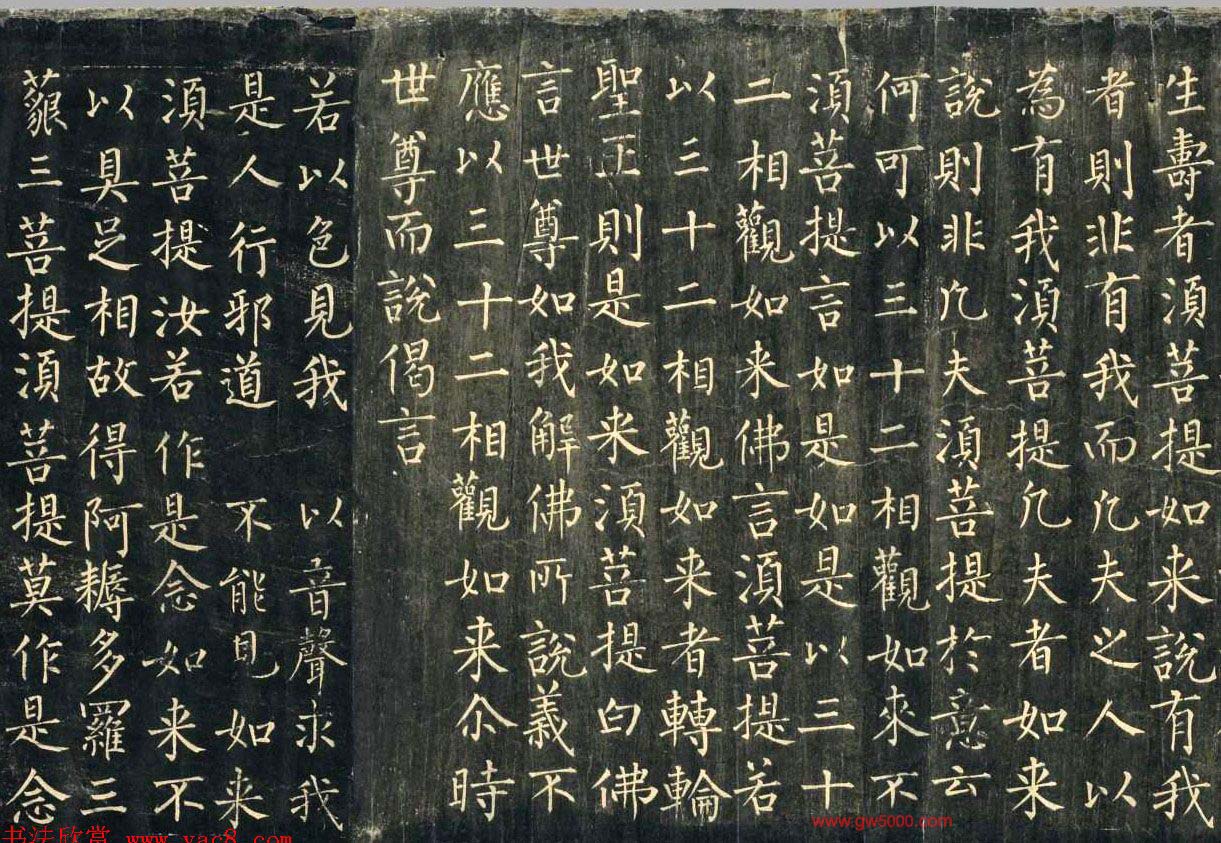 生壽者須菩提如来說有我
者則非有我而凡夫之人以
為有我須菩提凡夫者如来
說則非凡夫須菩提於意云
何可以三十二相觀如來不
須菩提言如是如是以三十
二相觀如来佛言須菩提若
以三十二相觀如来者轉輪
聖王則是如来須菩提白佛
言世尊如我解佛所說義不
應以三十二相觀如来尒時
世尊而說偈言
若以色見我 以音聲求我
是人行邪道 不能見如来
須菩提汝若作是念如来不
以具足相故得阿耨多羅三
藐三菩提須菩提莫作是念
www.gw5000.com
书法欣赏 www.yac8.com